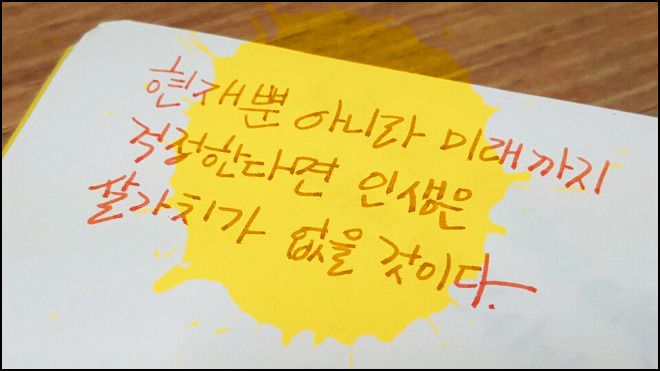 현재뿐 아니라 미래까지
걱정한다면 인생은
살가치가 없을 것이다.